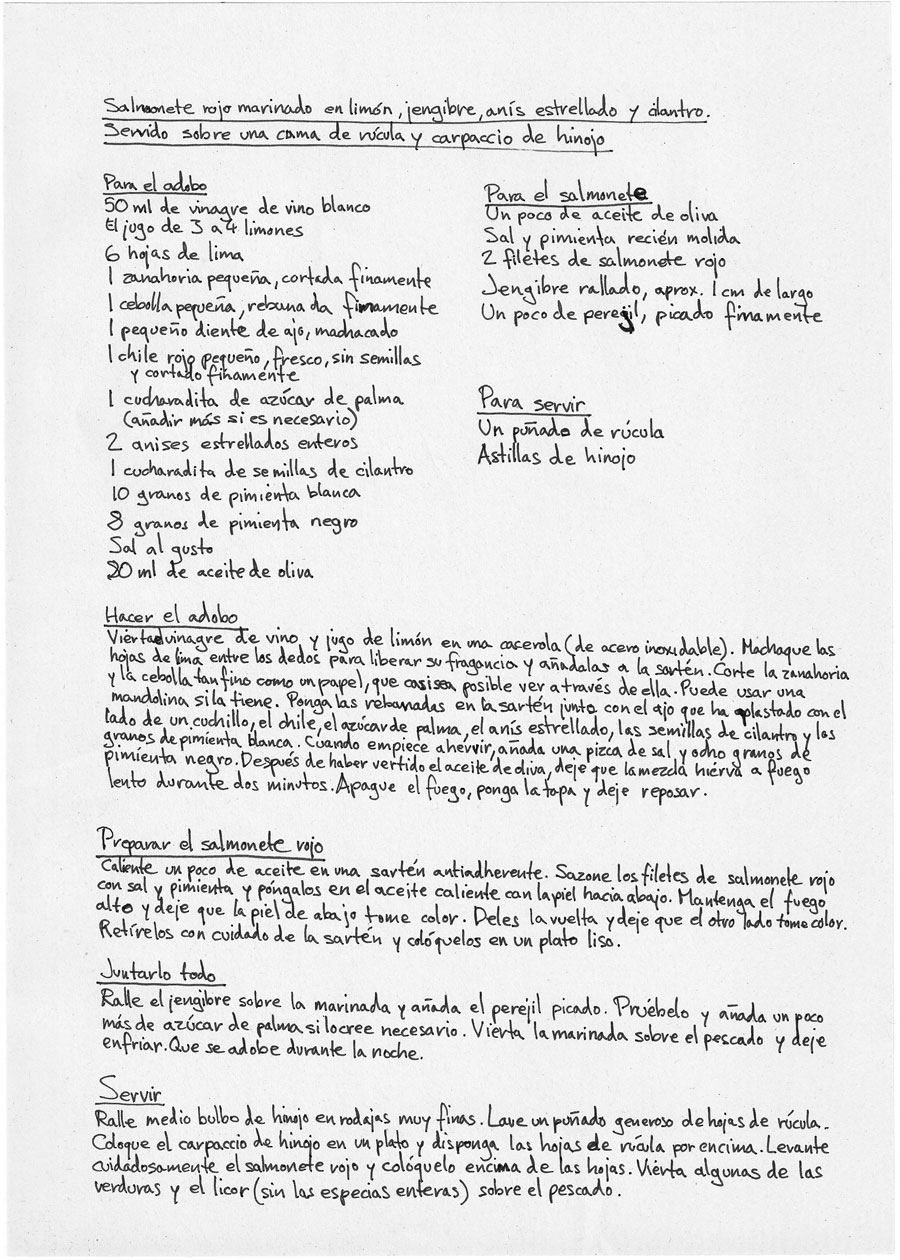 Salmonete rojo marinado en limón, jengibre, anís estrellado y cilantro.
Servido sobre una cama de rúcula y carpaccio de hinojo
Para el adobo
50 ml de vinagre de vino blanco
El jugo de 3 a 4 limones
6 hojas de lima
1 zanahoria pequeña, cortada finamente
1 cebolla pequeña, rebanada finamente
1 pequeño diente de ajo, machacado
1 chile rojo pequeño, fresco, sin semillas
y cortado finamente
1 cucharadita de azúcar de palma
(añadir más si es necesario)
2 anises estrellados enteros
1 cucharadita de semillas de cilantro
10 granos de pimienta blanca
8 granos de pimienta negro
Sal al gusto
20 ml de aceite de oliva
Para el salmonete
Un poco de aceite de oliva
Sal y pimienta recién molida
2 filetes de salmonete rojo
Jengibre rallado, aprox. 1 cm de largo
Un poco de perejil, picado finamente
Para servir
Un puñado de rúcula
Astillas de hinojo
Hacer el adobo
Viérta el vinagre de vino y jugo de limón en una cacerola (de acero inoxidable). Machaque las
hojas de lima entre los dedos para liberar su fragancia y añadalas a la sartén. Corte la zanahoria
y la cebolla tan fino como un papel, que casi sea posible ver a través de ella. Puede usar una
mandolina si la tiene. Ponga las rebanadas en la sartén junto con el ajo que ha aplastado con el
lado de un cuchillo, el chile, el azúcar de palma, el anís estrellado, las semillas de cilantro y los
granos de pimienta blanca. Cuando empiece a hervir, añada una pizca de sal y ocho granos de
pimienta negro. Después de haber vertido el aceite de oliva, deje que la mezcla hierva a fuego
lento durante dos minutos. Apague el fuego, ponga la tapa y deje reposar.
Preparar el salmonete rojo
Caliente un poco de aceite en una sartén antiadherente. Sazone los filetes de salmonete rojo
con sal y pimienta y póngalos en el aceite caliente con la piel hacia abajo. Mantenga el fuego
alto y deje que la piel de abajo tome color. Deles la vuelta y deje que el otro lado tome color.
Retírelos con cuidado de la sartén y colóquelos en un plato liso.
Juntarlo todo
Ralle el jengibre sobre la marinada y añada el perejil picado. Pruébelo y añada un poco
más de azúcar de palma si lo cree necesario. Vierta la marinada sobre el pescado y deje
enfriar. Que se adobe durante la noche.
Servir
Ralle medio bulbo de hinojo en rodajas muy finas. Lave un puñado generoso de hojas de rúcula.
Coloque el carpaccio de hinojo en un plato y disponga las hojas de rúcula por encima. Levante
cuidadosamente el salmonete rojo y colóquelo encima de las hojas. Vierta algunas de las
verduras y el licor (sin las especias enteras) sobre el pescado.